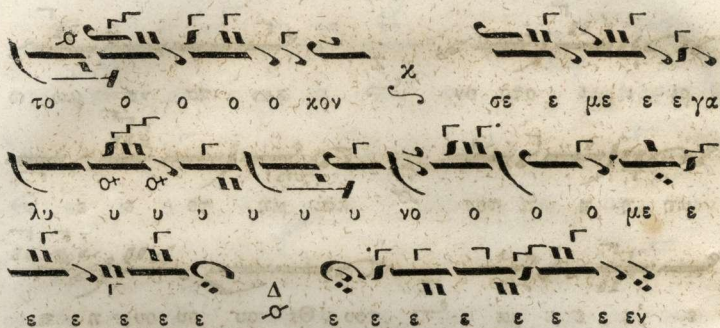 το ο ο ο ο κον ϗ σε ε με ε ε γα
λυ υ υ υ υ υ υ νο ο ο ο με ε
ε ε ε ε ε Δ ε ε ε ε ε ε ε εν